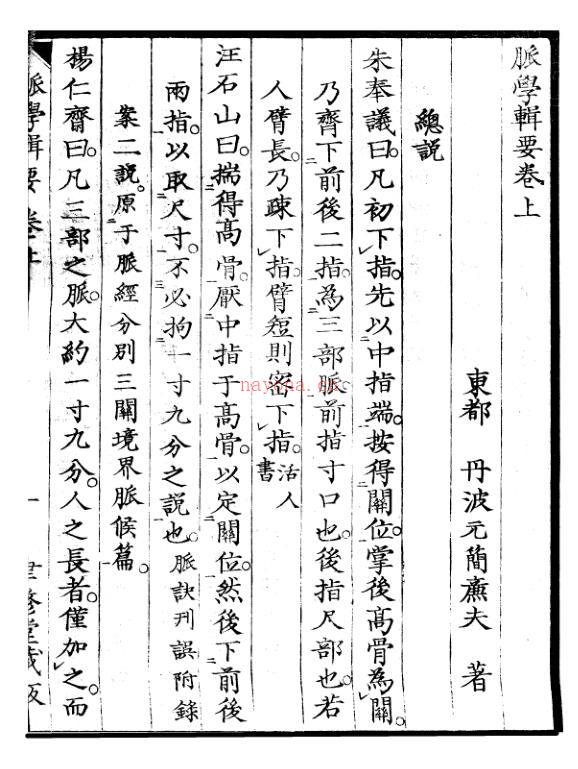 脈學輯要卷上
東都 丹波元簡廉夫 著
總説
朱奉議曰。凡初下指。先以中指端。按得關位。掌後高骨為關。
乃齊下前後二指。為三部脈前指寸口也。後指尺部也。若
人臂長。乃疎下指。臂短則密下指。活人書
汪石山曰。揣得高骨。厭中指于高骨。以定關位。然後下前後
兩指。以取尺寸。不必拘一寸九分之説也。脈訣刊誤附錄
案二説。原于脈經分別三關境界脈候篇。
楊仁齋曰。凡三部之脈。大約一寸九分。人之長者。僅加之。而
脈學輯要 卷上 一 聿修堂藏版
nayona.cn